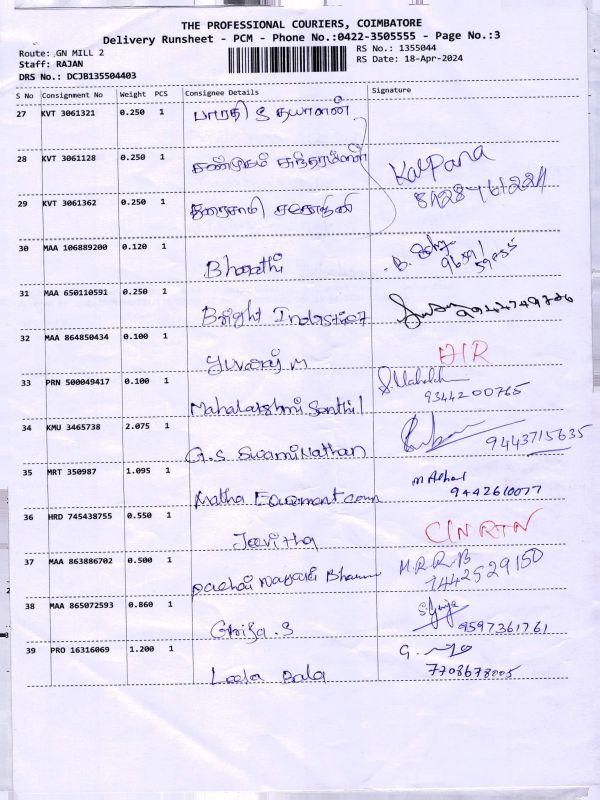 THE PROFESSIONAL COURIERS, COIMBATORE
Delivery Runsheet - PCM - Phone No.:0422-3505555 - Page No.:3
Route: GN MILL 2
RS No.: 1355044
Staff: RAJAN
RS Date: 18-Apr-2024
DRS No.: DCJB135504403
S No Consignment No Weight PCS Consignee Details Signature
27 KVT 3061321 0.250 1 பாரதி & தயாளன்
28 KVT 3061128 0.250 1 சண்முகம் Kalpana
29 KVT 3061362 0.250 1 துரைசாமி
30 MAA 106889200 0.120 1 Bharathi
31 MAA 650110591 0.250 1 Bright
32 MAA 864850434 0.100 1 Yuvaraj.M
33 PRN 500049417 0.100 1 Mahalakshmi Senthil 9344200765
34 KMU 3465738 2.075 1 G.S. Swaminathan 9443715635
35 MRT 350987 1.095 1 Matha 9442610077
36 HRD 745438755 0.550 1 Jeevitha
37 MAA 863886702 0.500 1 M.R.R.B 7442529150
38 MAA 865072593 0.860 1 Girija.S 9597361761
39 PRO 16316069 1.200 1 Leela Bala 7708678005